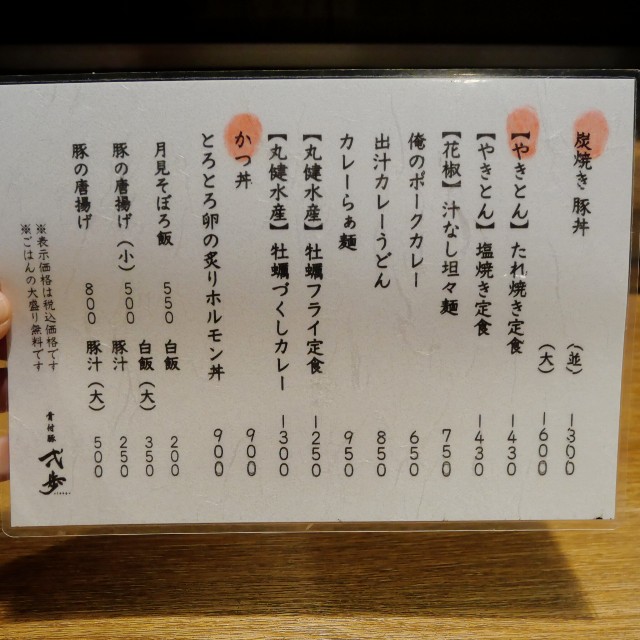 炭焼き豚丼 (並) 1300
(大) 1600
【やきとん】たれ焼き定食 1430
【やきとん】塩焼き定食 1430
【花椒】汁なし坦々麺 750
俺のポークカレー 650
出汁カレーうどん 850
カレーらぁ麺 950
【丸健水産】牡蠣フライ定食 1250
【丸健水産】牡蠣づくしカレー 1300
かつ丼 900
とろとろ卵の炙りホルモン丼 900
月見そぼろ飯 550 白飯 200
豚の唐揚げ(小) 500 白飯(大) 350
豚汁 250
豚の唐揚げ 800 豚汁(大) 500
※表示価格は税込価格です
※ごはんの大盛り無料です
骨付豚
弍歩